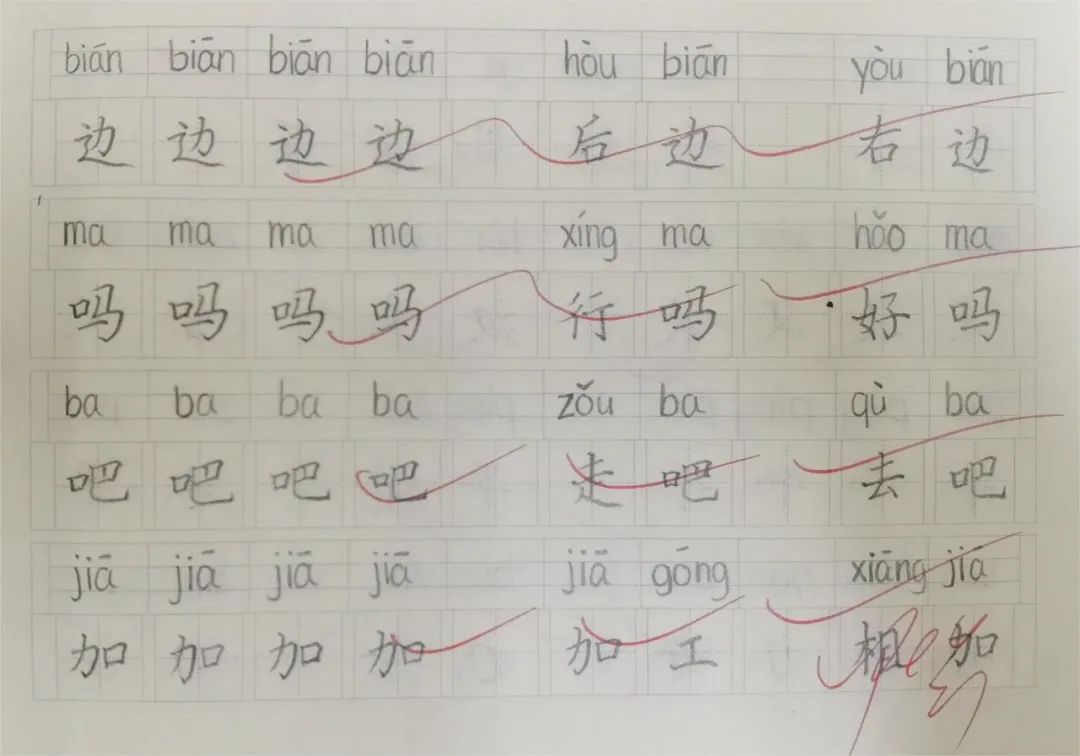 biān biān biān biān hòu biān yòu biān
边 边 边 边 后 边 右 边
ma ma ma ma xíng ma hǎo ma
吗 吗 吗 吗 行 吗 好 吗
ba ba ba ba zǒu ba qù ba
吧 吧 吧 吧 走 吧 去 吧
jiā jiā jiā jiā jiā gōng xiāng jiā
加 加 加 加 加 工 相 加